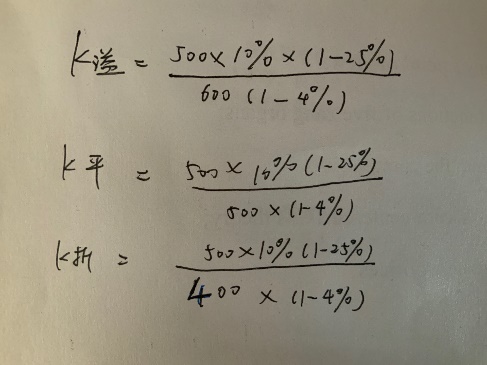 K溢 = 500×10%×(1-25%) / 600 (1-4%)
K平 = 500×10%(1-25%) / 500×(1-4%)
K折 = 500×10%(1-25%) / 400×(1-4%)